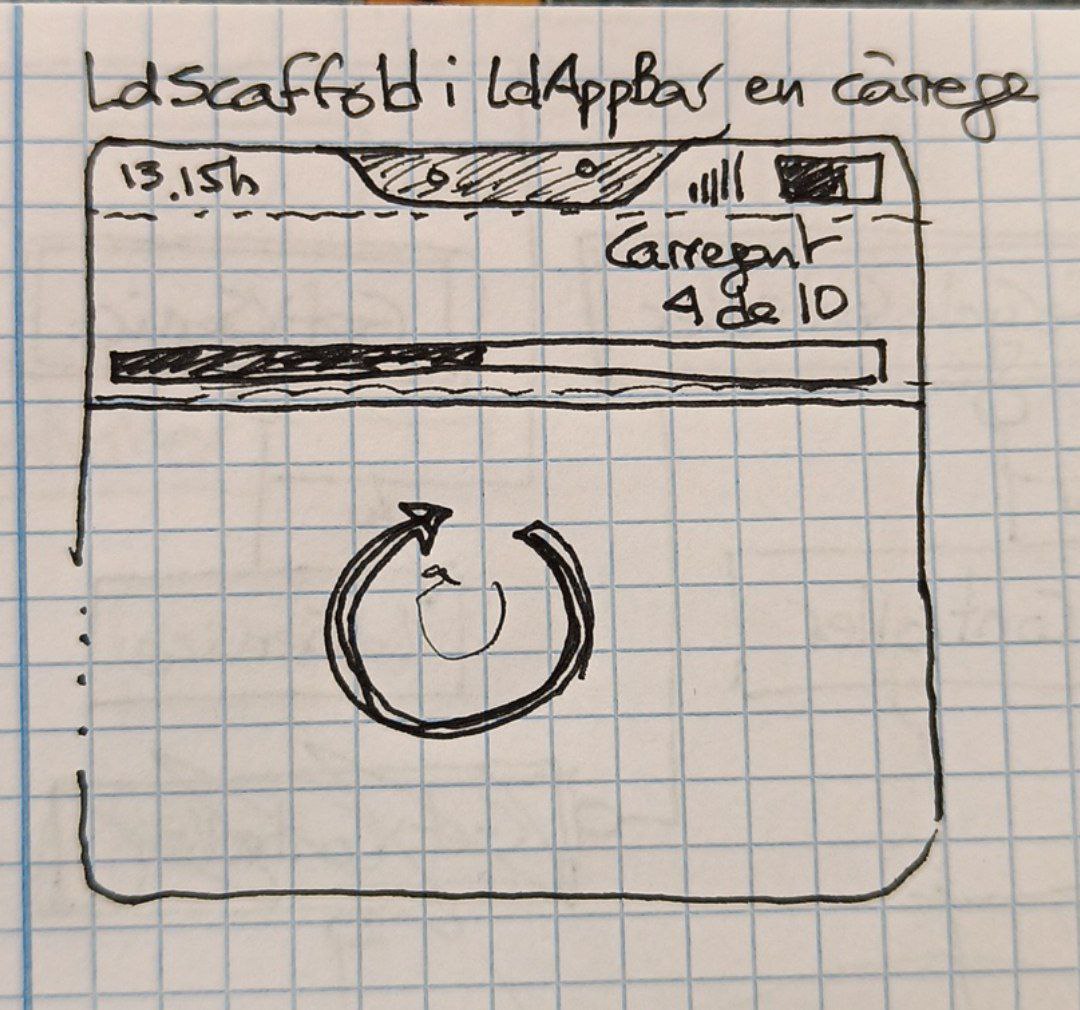 LdScaffold i LdAppBar en càrrega
13.15h
Carregant
4 de 10